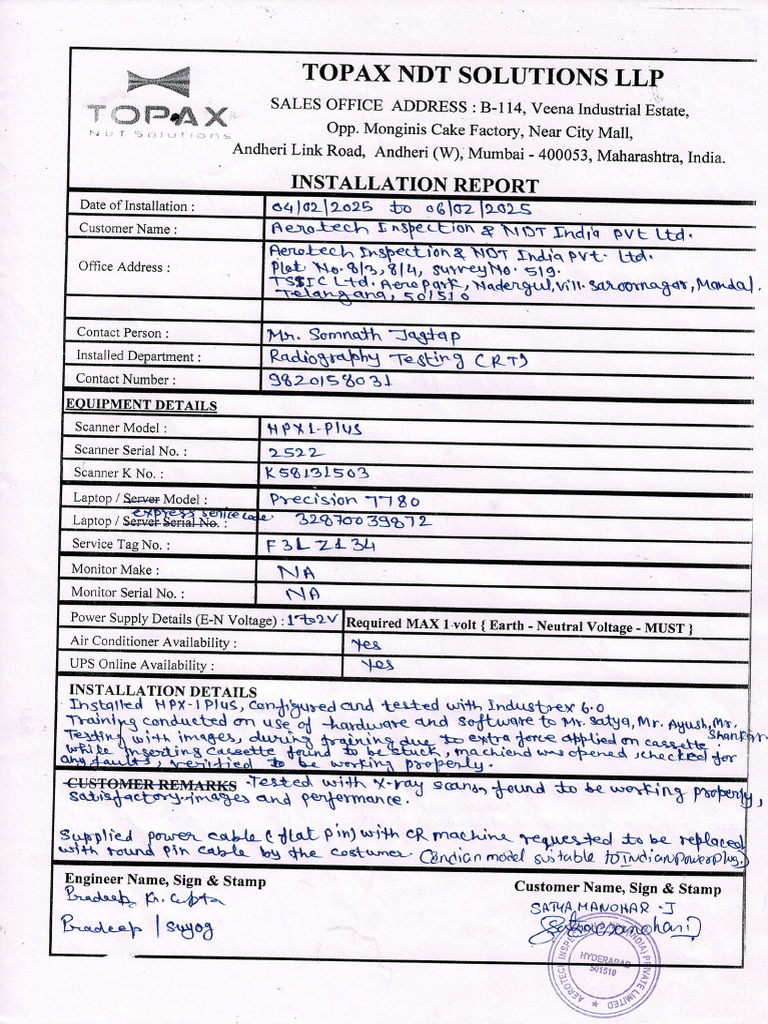 TOPAX
NDT Solutions
TOPAX NDT SOLUTIONS LLP
SALES OFFICE ADDRESS : B-114, Veena Industrial Estate,
Opp. Monginis Cake Factory, Near City Mall,
Andheri Link Road, Andheri (W), Mumbai - 400053, Maharashtra, India.
INSTALLATION REPORT
Date of Installation : 04/02/2025 to 06/02/2025
Customer Name : Aerotech Inspection & NDT India Pvt Ltd.
Office Address : Aerotech Inspection & NDT India Pvt. Ltd.
Plot No. 8/3, 8/4, Survey No. 519.
TSSIC Ltd. Aeropark, Nadergul, Vill. Saroornagar, Mandal.
Telangana, 501510
Contact Person : Mr. Somnath Jagtap
Installed Department : Radiography Testing (RT)
Contact Number : 9820158031
EQUIPMENT DETAILS
Scanner Model : HPX1-Plus
Scanner Serial No. : 2522
Scanner K No. : K58131503
Laptop / Server Model : Precision 7780
express service code
Laptop / Server Serial No. : 32870039872
Service Tag No. : F31Z134
Monitor Make : NA
Monitor Serial No. : NA
Power Supply Details (E-N Voltage) : 1 to 2V Required MAX 1 volt { Earth - Neutral Voltage - MUST }
Air Conditioner Availability : Yes
UPS Online Availability : Yes
INSTALLATION DETAILS
Installed HPX-1 Plus, configured and tested with Industrex 6.0
Training conducted on use of hardware and software to Mr. Satya, Mr. Ayush, Mr. Shankar.
Testing with images, during training due to extra force applied on cassette.
while inserting cassette found to be stuck, machiend was opened, checked for
any faults, verified to be working properly.
CUSTOMER REMARKS - Tested with X-ray scans, found to be working properly,
satisfactory images and performance.
Supplied power cable (flat pin) with CR machine requested to be replaced
with round pin cable by the costumer. (Indian model suitable to Indian power plug.)
Engineer Name, Sign & Stamp Customer Name, Sign & Stamp
Pradeep Kr. Gupta SATYA MANOHAR - J
Pradeep / Suyog
AEROTECH INSPECTION & NDT (INDIA) PRIVATE LIMITED
HYDERABAD
501510